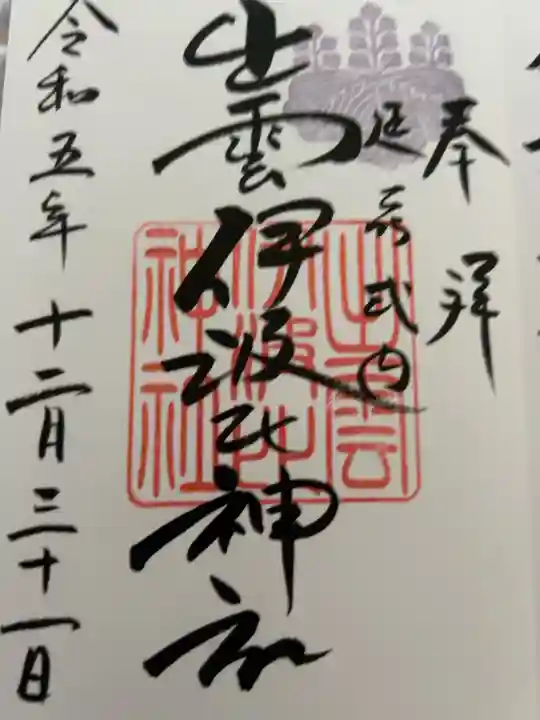 奉拝
延喜式内
出雲伊波比神社
出雲
伊波比
神社
令和五年十二月三十一日